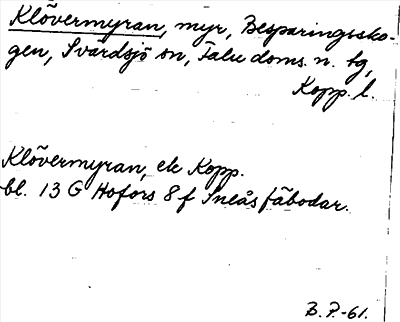 Klövermyran, myr, Besparingssko-
gen, Svärdsjö sn, Falu doms. n. tg,
Kopp. l.
Klövermyran, ek Kopp.
bl. 13 G Hofors 8 f Sneås fäbodar.
B. P.-61.